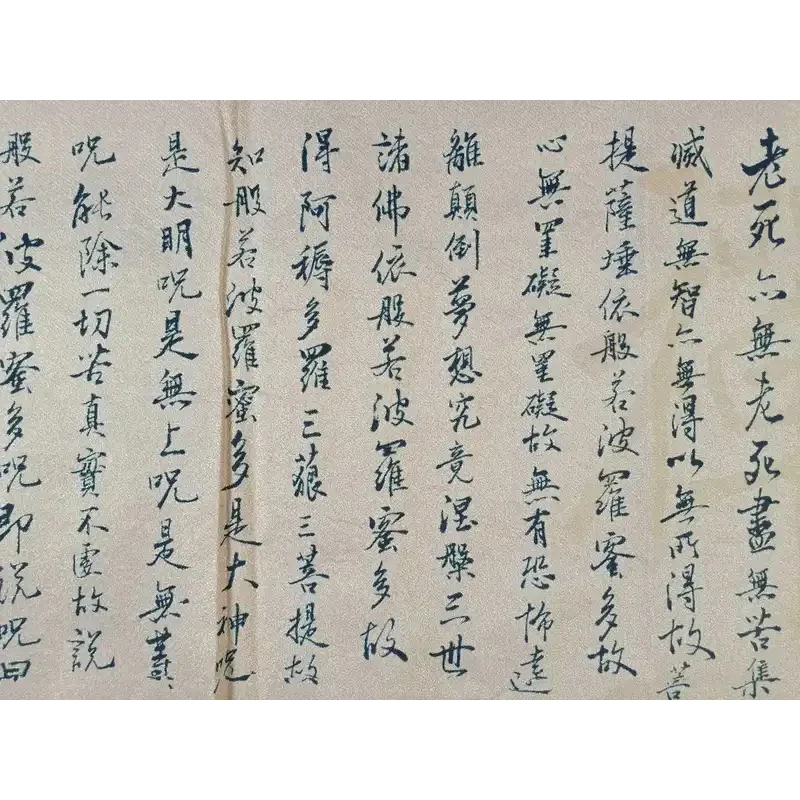 老死亦無老死盡無苦集
滅道無智亦無得以無所得故菩
提薩埵依般若波羅蜜多故
心無罣礙無罣礙故無有恐怖遠
離顛倒夢想究竟涅槃三世
諸佛依般若波羅蜜多故
得阿耨多羅三藐三菩提故
知般若波羅蜜多是大神咒
是大明咒是無上咒是無等
咒能除一切苦真實不虛故說
般若波羅蜜多咒即說咒曰